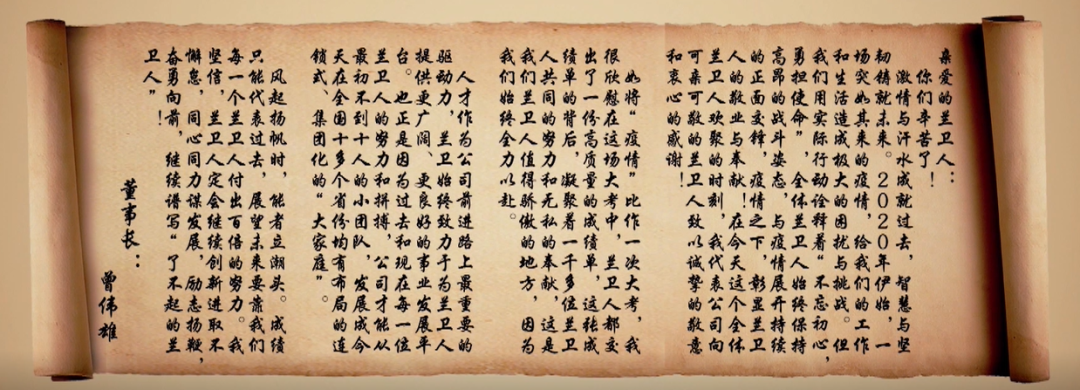 亲爱的兰卫人：
你们辛苦了！
激情与汗水成就过去，智慧与坚
韧铸就未来。2020年伊始，一
场突如其来的疫情，给我们的工作
和生活造成极大的困扰与挑战。但
我们用实际行动诠释着“不忘初心，
勇担使命”，全体兰卫人始终保持
高昂的战斗姿态，与疫情展开持续
的正面交锋，疫情之下，彰显兰卫
人的敬业与奉献！在今天这个全体
兰卫人欢聚的时刻，我代表公司向
可亲可敬的兰卫人致以诚挚的敬意
和衷心的感谢！
如将“疫情”比作一次大考，我
很欣慰在这场大考中，兰卫人都交
出了一份高质量的成绩单，这张成
绩单的背后，凝聚着一千多位兰卫
人共同的努力和无私的奉献，这是
我们兰卫人值得骄傲的地方，因为
我们始终全力以赴。
人才作为公司前进路上最重要的
驱动力，兰卫始终致力于为兰卫人
提供更广阔、更良好的事业发展平
台。也正是因为过去和现在每一位
兰卫人的努力和拼搏，公司才能从
最初不到十人的小团队，发展成今
天在全国十多个省份均有布局的连
锁式、集团化的“大家庭”。
风起扬帆时，能者立潮头。成绩
只能代表过去，展望未来要靠我们
每一个兰卫人付出百倍的努力。我
坚信，兰卫人定会继续创新进取不
懈怠，同心同力谋发展，励志扬鞭，
奋勇向前，继续谱写“了不起的兰
卫人”！
董事长：
曾伟雄